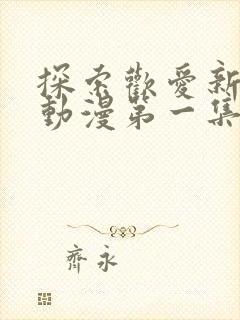 探索歡愛新
動漫第一集
齊永